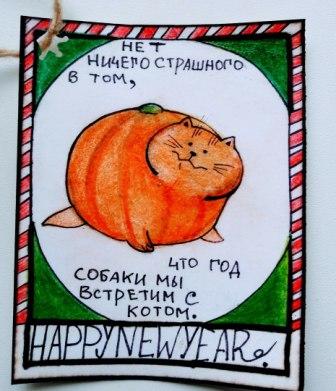 НЕТ
НИЧЕГО СТРАШНОГО
В ТОМ,
ЧТО ГОД
СОБАКИ МЫ
ВСТРЕТИМ С
КОТОМ.
HAPPY NEW YEAR.